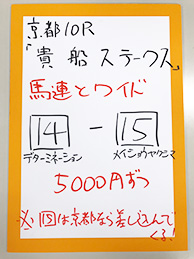 京都10R
「貴船ステークス」
馬連とワイド
14 - 15
デターミネーション メイショウヤクシマ
5000円ずつ
※15は京都なら差し込んで
くる!